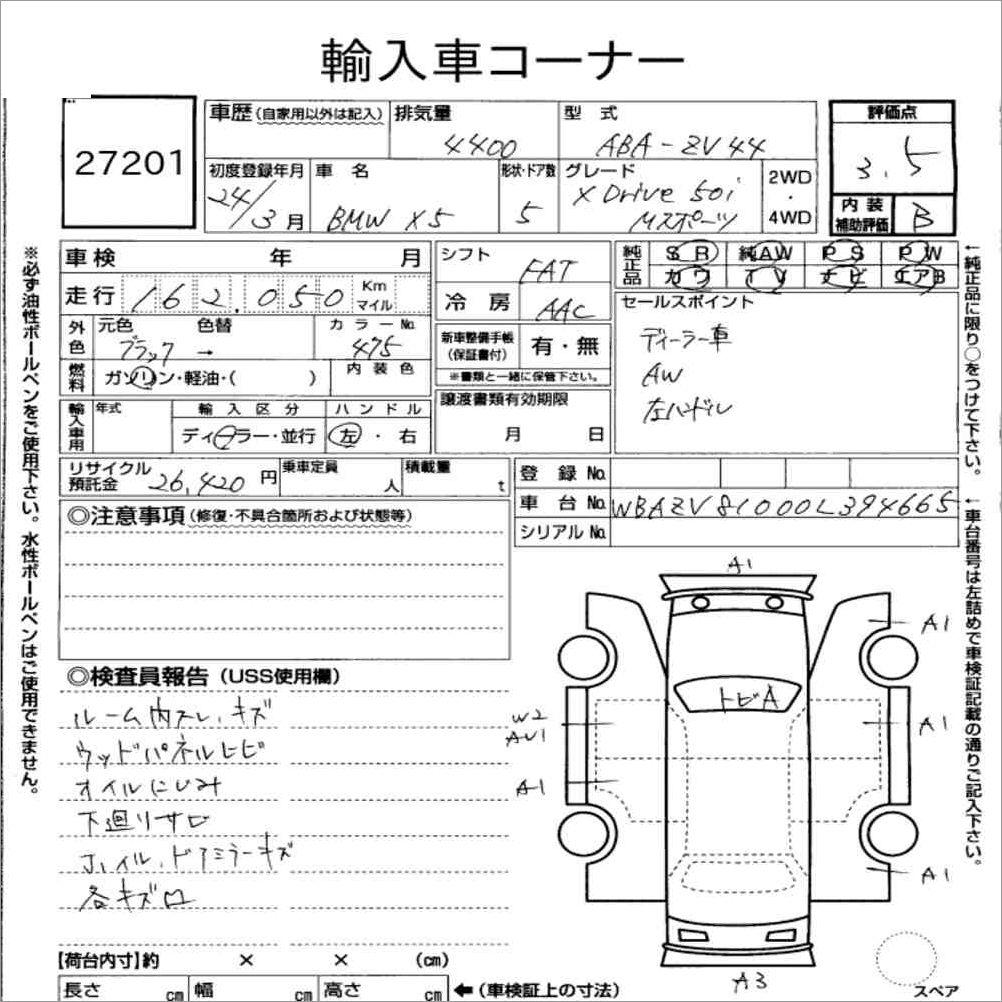 輸入車コーナー
27201
車歴(自家用以外は記入)
排気量
4400
型 式
ABA-ZV44
評価点
3.5
初度登録年月
24/3月
車 名
BMW X5
形状・ドア数
5
グレード
X Drive 50i
Mスポーツ
2WD
・
4WD
内 装
補助評価
B
車 検 年 月
走 行 162,050 Km
マイル
シフト
FAT
冷 房
AAC
純正品
SR 純AW PS PW
カワ TV ナビ エアB
外色
元色 色替
ブラック →
カラーNo.
475
燃料
ガソリン・軽油・( )
内 装 色
新車整備手帳
(保証書付)
有・無
※書類と一緒に保管下さい。
セールスポイント
ディーラー車
AW
左ハンドル
輸入車用
年式
輸 入 区 分
ディーラー・並行
ハ ン ド ル
左 ・ 右
譲渡書類有効期限
月 日
リサイクル
預託金
26,420 円
乗車定員
人
積載量
t
登 録 No.
車 台 No. WBAZV81000L394665
シリアル No.
◎注意事項(修復・不具合箇所および状態等)
◎検査員報告(USS使用欄)
ルーム内スレ、キズ
ウッドパネルヒビ
オイルにじみ
下廻りサビ
ホイル、ドアミラーキズ
各キズ
A1
A1
トビA
W2
AU1
A1
A1
A1
A3
【荷台内寸】約 × × (cm)
長さ cm
幅 cm
高さ cm
←(車検証上の寸法)
スペア
※必ず油性ボールペンをご使用下さい。水性ボールペンはご使用できません。
←純正品に限り○をつけて下さい。
←車台番号は左詰めで車検証記載の通りご記入下さい。